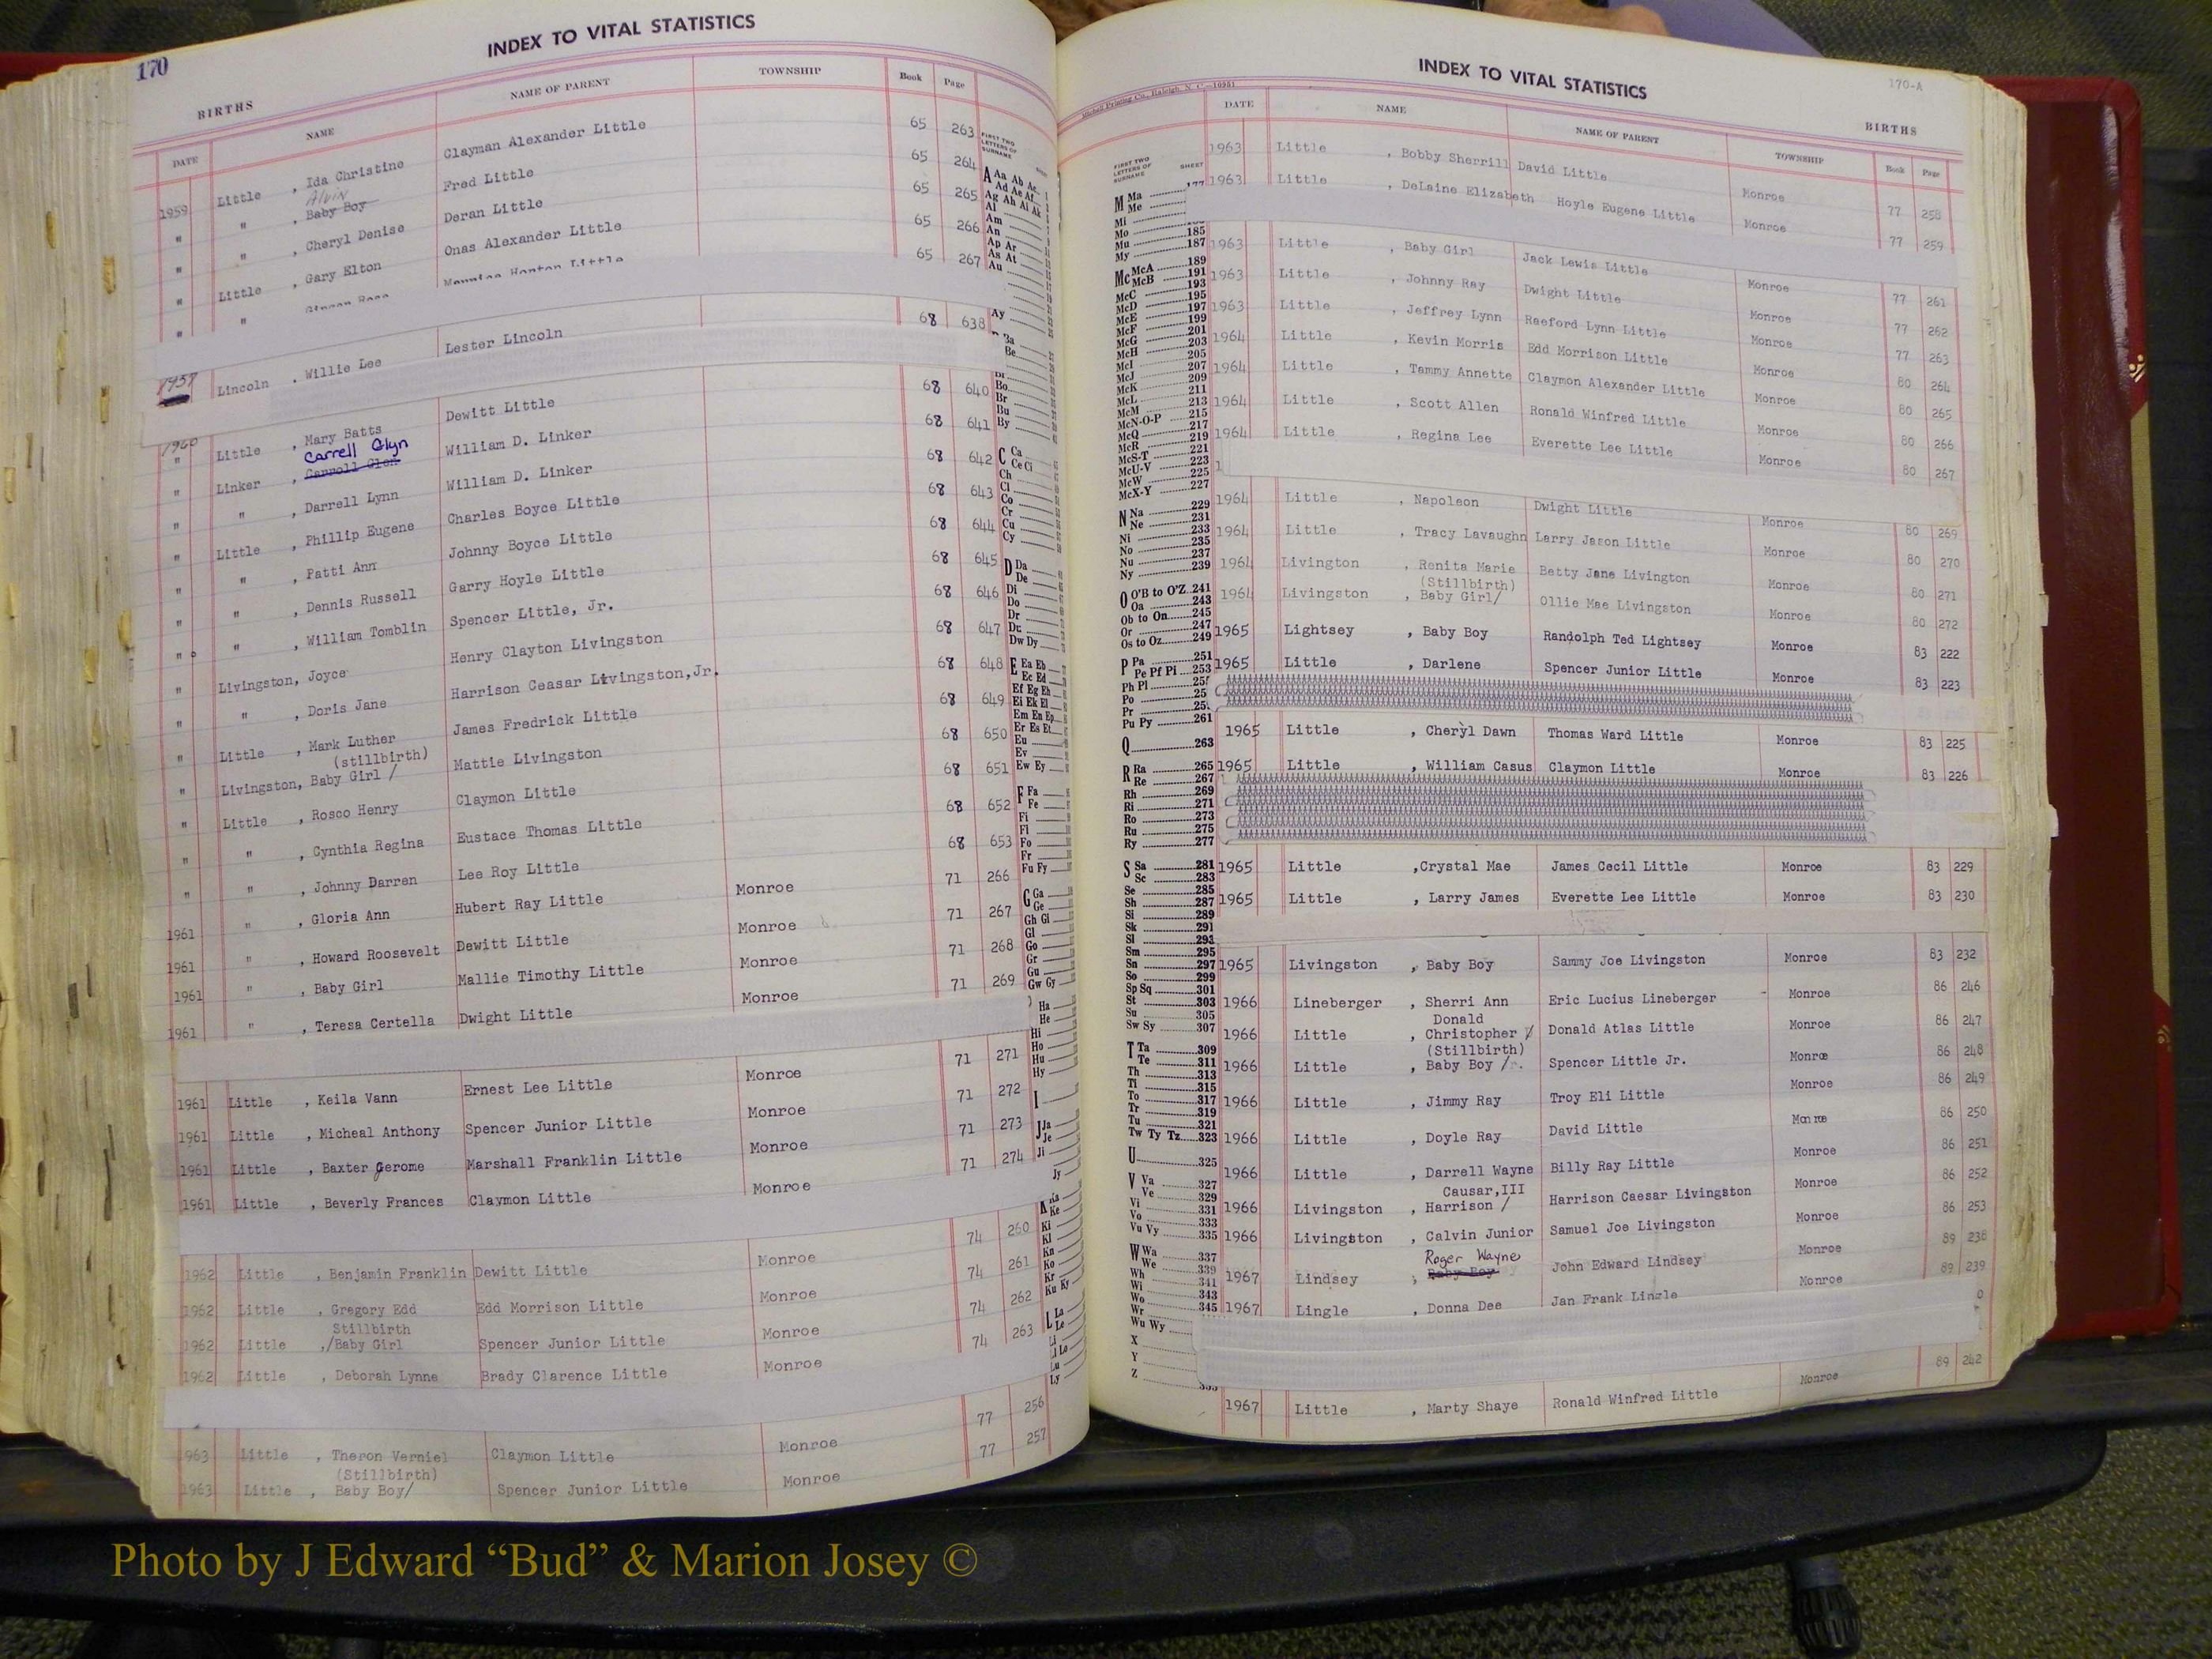 170
INDEX TO VITAL STATISTICS
BIRTHS
DATE NAME NAME OF PARENT TOWNSHIP Book Page
1959 Little , Ida Christine Clayman Alexander Little 65 263
" " , Alvin Baby Boy Fred Little 65 264
" " , Cheryl Denise Doran Little 65 265
" Little , Gary Elton Onas Alexander Little 65 266
" " 65 267
Lincoln , Willie Lee Lester Lincoln 68 638
1960 Little , Mary Batts Dewitt Little 68 640
Carrell Glyn
" Linker , Carroll Glen William D. Linker 68 641
" " , Darrell Lynn William D. Linker 68 642
" Little , Phillip Eugene Charles Boyce Little 68 643
" " , Patti Ann Johnny Boyce Little 68 644
" " , Dennis Russell Garry Hoyle Little 68 645
" " , William Tomblin Spencer Little, Jr. 68 646
" Livingston, Joyce Henry Clayton Livingston 68 647
" " , Doris Jane Harrison Ceasar Livingston,Jr. 68 648
" Little , Mark Luther James Fredrick Little 68 649
(stillbirth)
" Livingston, Baby Girl / Mattie Livingston 68 650
" Little , Rosco Henry Claymon Little 68 651
" " , Cynthia Regina Eustace Thomas Little 68 652
" " , Johnny Darren Lee Roy Little 68 653
1961 " , Gloria Ann Hubert Ray Little Monroe 71 266
1961 " , Howard Roosevelt Dewitt Little Monroe 71 267
1961 " , Baby Girl Mallie Timothy Little Monroe 71 268
1961 " , Teresa Certella Dwight Little Monroe 71 269
1961 Little , Keila Vann Ernest Lee Little Monroe 71 271
1961 Little , Micheal Anthony Spencer Junior Little Monroe 71 272
1961 Little , Baxter Gerome Marshall Franklin Little Monroe 71 273
1961 Little , Beverly Frances Claymon Little Monroe 71 274
1962 Little , Benjamin Franklin Dewitt Little Monroe 74 260
1962 Little , Gregory Edd Edd Morrison Little Monroe 74 261
Stillbirth
1962 Little ,/Baby Girl Spencer Junior Little Monroe 74 262
1962 Little , Deborah Lynne Brady Clarence Little Monroe 74 263
1963 Little , Theron Verniel Claymon Little Monroe 77 256
(Stillbirth)
1963 Little , Baby Boy/ Spencer Junior Little Monroe 77 257
FIRST TWO LETTERS OF SURNAME
A Aa Ab Ac
Ad Ae Af
Ag Ah Ai Ak
Al
Am
An
Ap Ar
As At
Au
Ay
Ba
Be
Bo
Br
Bu
By
C Ca
Ce Ci
Ch
Cl
Co
Cr
Cu
Cy
D Da
De
Di
Do
Dr
Du
Dw Dy
E Ea Eb
Ec Ed
Ef Eg Eh
Ei Ek El
Em En Ep
Er Es Et
Eu
Ev
Ew Ey
F Fa
Fe
Fi
Fl
Fo
Fr
Fu Fy
G Ga
Ge
Gh Gi
Gl
Go
Gr
Gu
Gw Gy
Ha
He
Hi
Ho
Hu
Hy
I
J Ja
Je
Ji
Jy
Ke
Ki
Kl
Kn
Ko
Kr
Ku Ky
L La
Le
Lo
Lu
Ly
INDEX TO VITAL STATISTICS
170-A
Mitchell Printing Co., Raleigh, N. C.—10951
BIRTHS
DATE NAME NAME OF PARENT TOWNSHIP Book Page
1963 Little , Bobby Sherrill David Little Monroe 77 258
1963 Little , DeLaine Elizabeth Hoyle Eugene Little Monroe 77 259
1963 Little , Baby Girl Jack Lewis Little Monroe 77 261
1963 Little , Johnny Ray Dwight Little Monroe 77 262
1963 Little , Jeffrey Lynn Raeford Lynn Little Monroe 77 263
1964 Little , Kevin Morris Edd Morrison Little Monroe 80 264
1964 Little , Tammy Annette Claymon Alexander Little Monroe 80 265
1964 Little , Scott Allen Ronald Winfred Little Monroe 80 266
1964 Little , Regina Lee Everette Lee Little Monroe 80 267
1964 Little , Napoleon Dwight Little Monroe 80 269
1964 Little , Tracy Lavaughn Larry Jason Little Monroe 80 270
1964 Livington , Renita Marie Betty Jane Livington Monroe 80 271
(Stillbirth)
1964 Livingston , Baby Girl/ Ollie Mae Livingston Monroe 80 272
1965 Lightsey , Baby Boy Randolph Ted Lightsey Monroe 83 222
1965 Little , Darlene Spencer Junior Little Monroe 83 223
1965 Little , Cheryl Dawn Thomas Ward Little Monroe 83 225
1965 Little , William Casus Claymon Little Monroe 83 226
1965 Little ,Crystal Mae James Cecil Little Monroe 83 229
1965 Little , Larry James Everette Lee Little Monroe 83 230
1965 Livingston , Baby Boy Sammy Joe Livingston Monroe 83 232
1966 Lineberger , Sherri Ann Eric Lucius Lineberger Monroe 86 246
Donald
1966 Little , Christopher / Donald Atlas Little Monroe 86 247
(Stillbirth)
1966 Little , Baby Boy / Spencer Little Jr. Monroe 86 248
1966 Little , Jimmy Ray Troy Eli Little Monroe 86 249
1966 Little , Doyle Ray David Little Monroe 86 250
1966 Little , Darrell Wayne Billy Ray Little Monroe 86 251
Causar,III
1966 Livingston , Harrison / Harrison Caesar Livingston Monroe 86 252
1966 Livingston , Calvin Junior Samuel Joe Livingston Monroe 86 253
Roger Wayne
1967 Lindsey , Baby Boy John Edward Lindsey Monroe 89 238
1967 Lingle , Donna Dee Jan Frank Lingle Monroe 89 239
1967 Little , Marty Shaye Ronald Winfred Little Monroe 89 242
FIRST TWO LETTERS OF SURNAME SHEET
M Ma 177
Me
Mi
Mo 185
Mu 187
My
Mc McA 189
McB 191
McC 193
McD 195
McE 197
McF 199
McG 201
McH 203
McI 205
McJ 207
McK 209
McL 211
McM 213
McN-O-P 215
McQ 217
McR 219
McS-T 221
McU-V 223
McW 225
McX-Y 227
N Na 229
Ne 231
Ni 233
No 235
Nu 237
Ny 239
O O'B to O'Z 241
Oa 243
Ob to On 245
Or 247
Os to Oz 249
P Pa 251
Pe Pf Pi 253
Ph Pl
Po
Pr
Pu Py 261
Q 263
R Ra 265
Re 267
Rh 269
Ri 271
Ro 273
Ru 275
Ry 277
S Sa 281
Sc 283
Se 285
Sh 287
Si 289
Sk 291
Sl 293
Sm 295
Sn 297
So 299
Sp Sq 301
St 303
Su 305
Sw Sy 307
T Ta 309
Te 311
Th 313
Ti 315
To 317
Tr 319
Tu 321
Tw Ty Tz 323
U 325
V Va 327
Ve 329
Vi 331
Vo 333
Vu Vy 335
W Wa 337
We 339
Wh 341
Wi 343
Wo 345
Wr
Wu Wy
X
Y
Z
Photo by J Edward “Bud” & Marion Josey ©